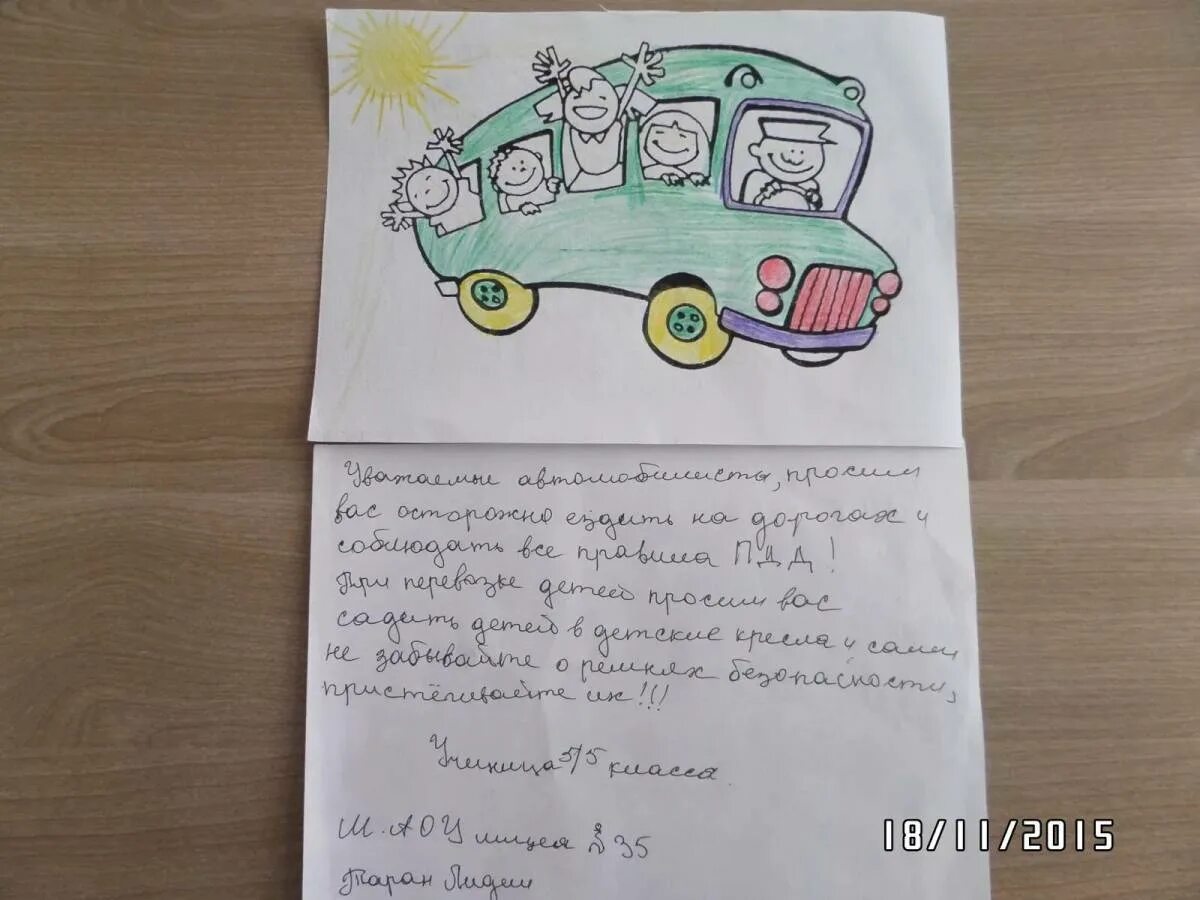 Уважаемые автомобилисты, просим
вас осторожно ездить на дорогах и
соблюдать все правила ПДД!
При перевозке детей просим вас
садить детей в детские кресла и сами
не забывайте о ремнях безопасности,
пристёгивайте их!!!
Ученица 5/5 класса
М.АОУ лицея 35
Таран Лидии
18/11/2015